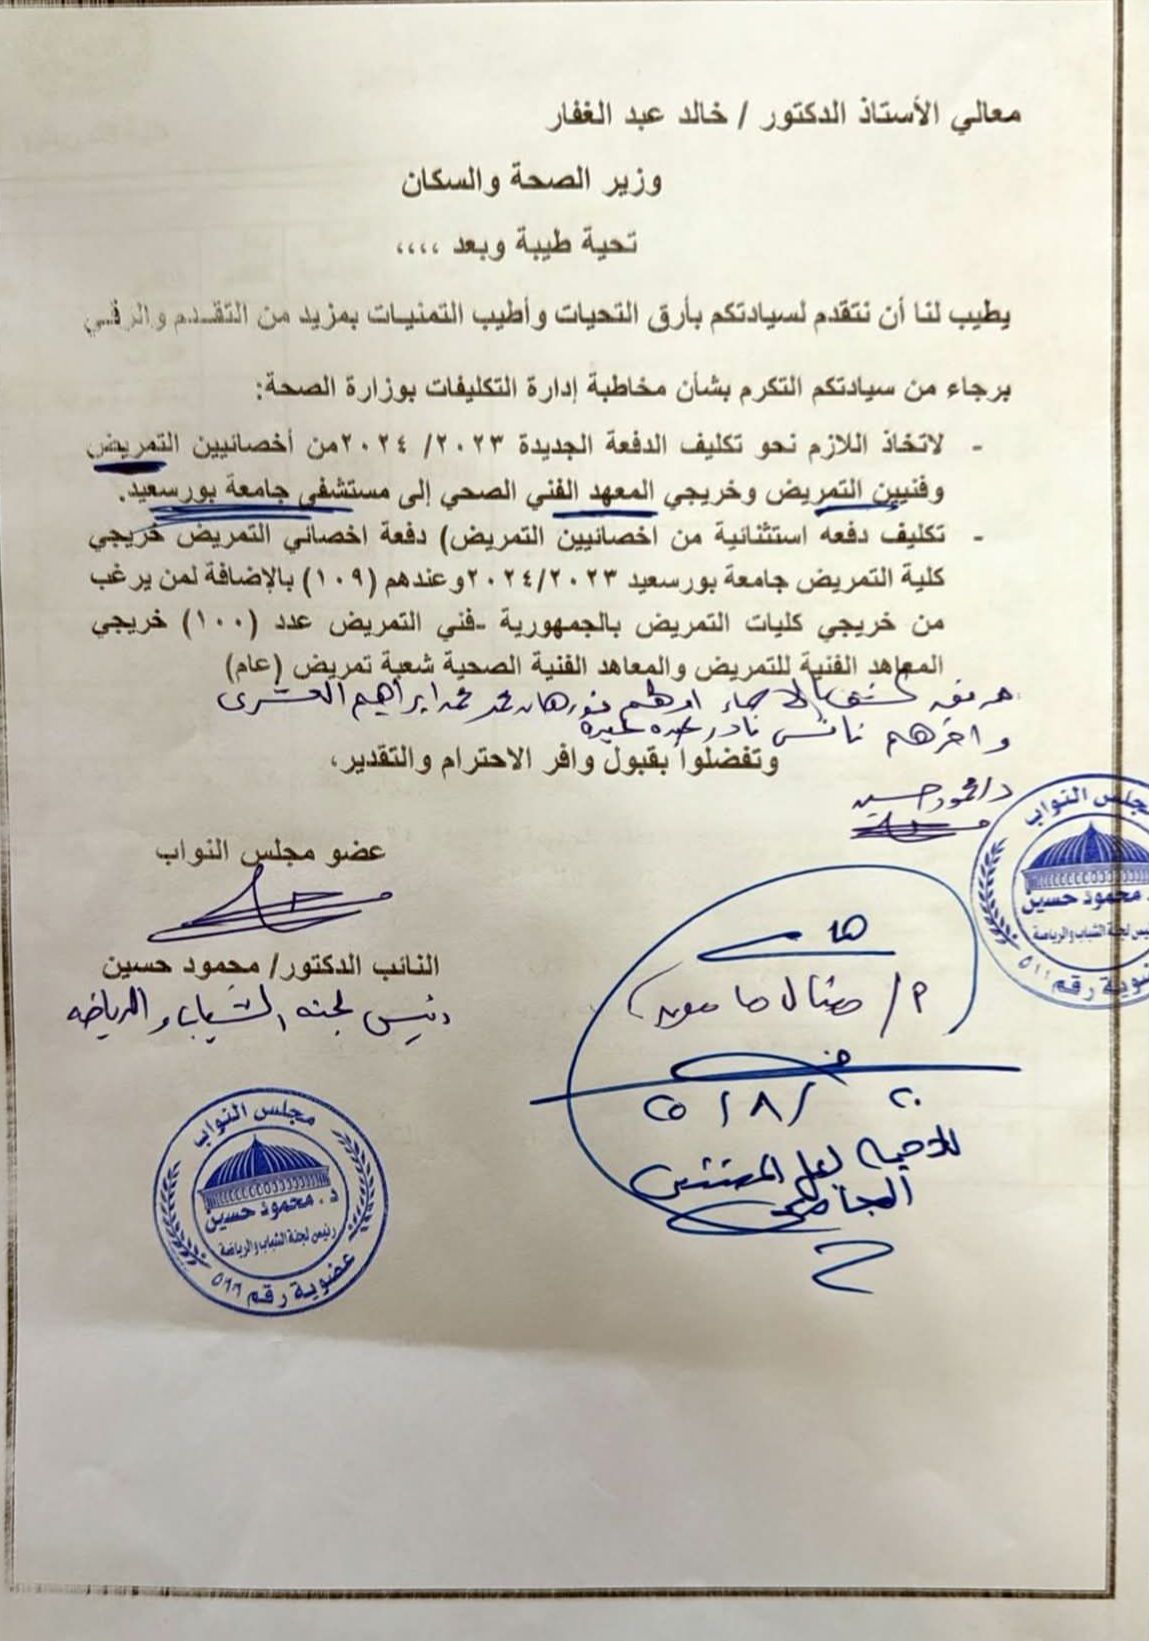 معالي الأستاذ الدكتور / خالد عبد الغفار
وزير الصحة والسكان
تحية طيبة وبعد ،،،،
يطيب لنا أن نتقدم لسيادتكم بأرق التحيات وأطيب التمنيات بمزيد من التقدم والرقي
برجاء من سيادتكم التكرم بشأن مخاطبة إدارة التكليفات بوزارة الصحة:
- لاتخاذ اللازم نحو تكليف الدفعة الجديدة ٢٠٢٣/ ٢٠٢٤من أخصائيين التمريض
وفنيين التمريض وخريجي المعهد الفني الصحي إلى مستشفى جامعة بورسعيد.
- تكليف دفعه استثنائية من اخصائيين التمريض) دفعة اخصائي التمريض خريجي
كلية التمريض جامعة بورسعيد ٢٠٢٤/٢٠٢٣وعندهم (١٠٩) بالإضافة لمن يرغب
من خريجي كليات التمريض بالجمهورية -فني التمريض عدد (١٠٠) خريجي
المعاهد الفنية للتمريض والمعاهد الفنية الصحية شعبة تمريض (عام)
مرفق كشف بالاسماء اولهم نورهان محمد محمد ابراهيم العشرى
واخرهم نانسى نادر عبده
وتفضلوا بقبول وافر الاحترام والتقدير،
د/محمود حسين
مجلس النواب
د. محمود حسين
رئيس لجنة الشباب والرياضة
عضوية رقم ٥١١
عضو مجلس النواب
النائب الدكتور/ محمود حسين
رئيس لجنه الشباب والرياضه
هام
م/
٢٠ / ٨ / ٢٥
المستشفى
الجامعى
مجلس النواب
د. محمود حسين
رئيس لجنة الشباب والرياضة
عضوية رقم ٥١١